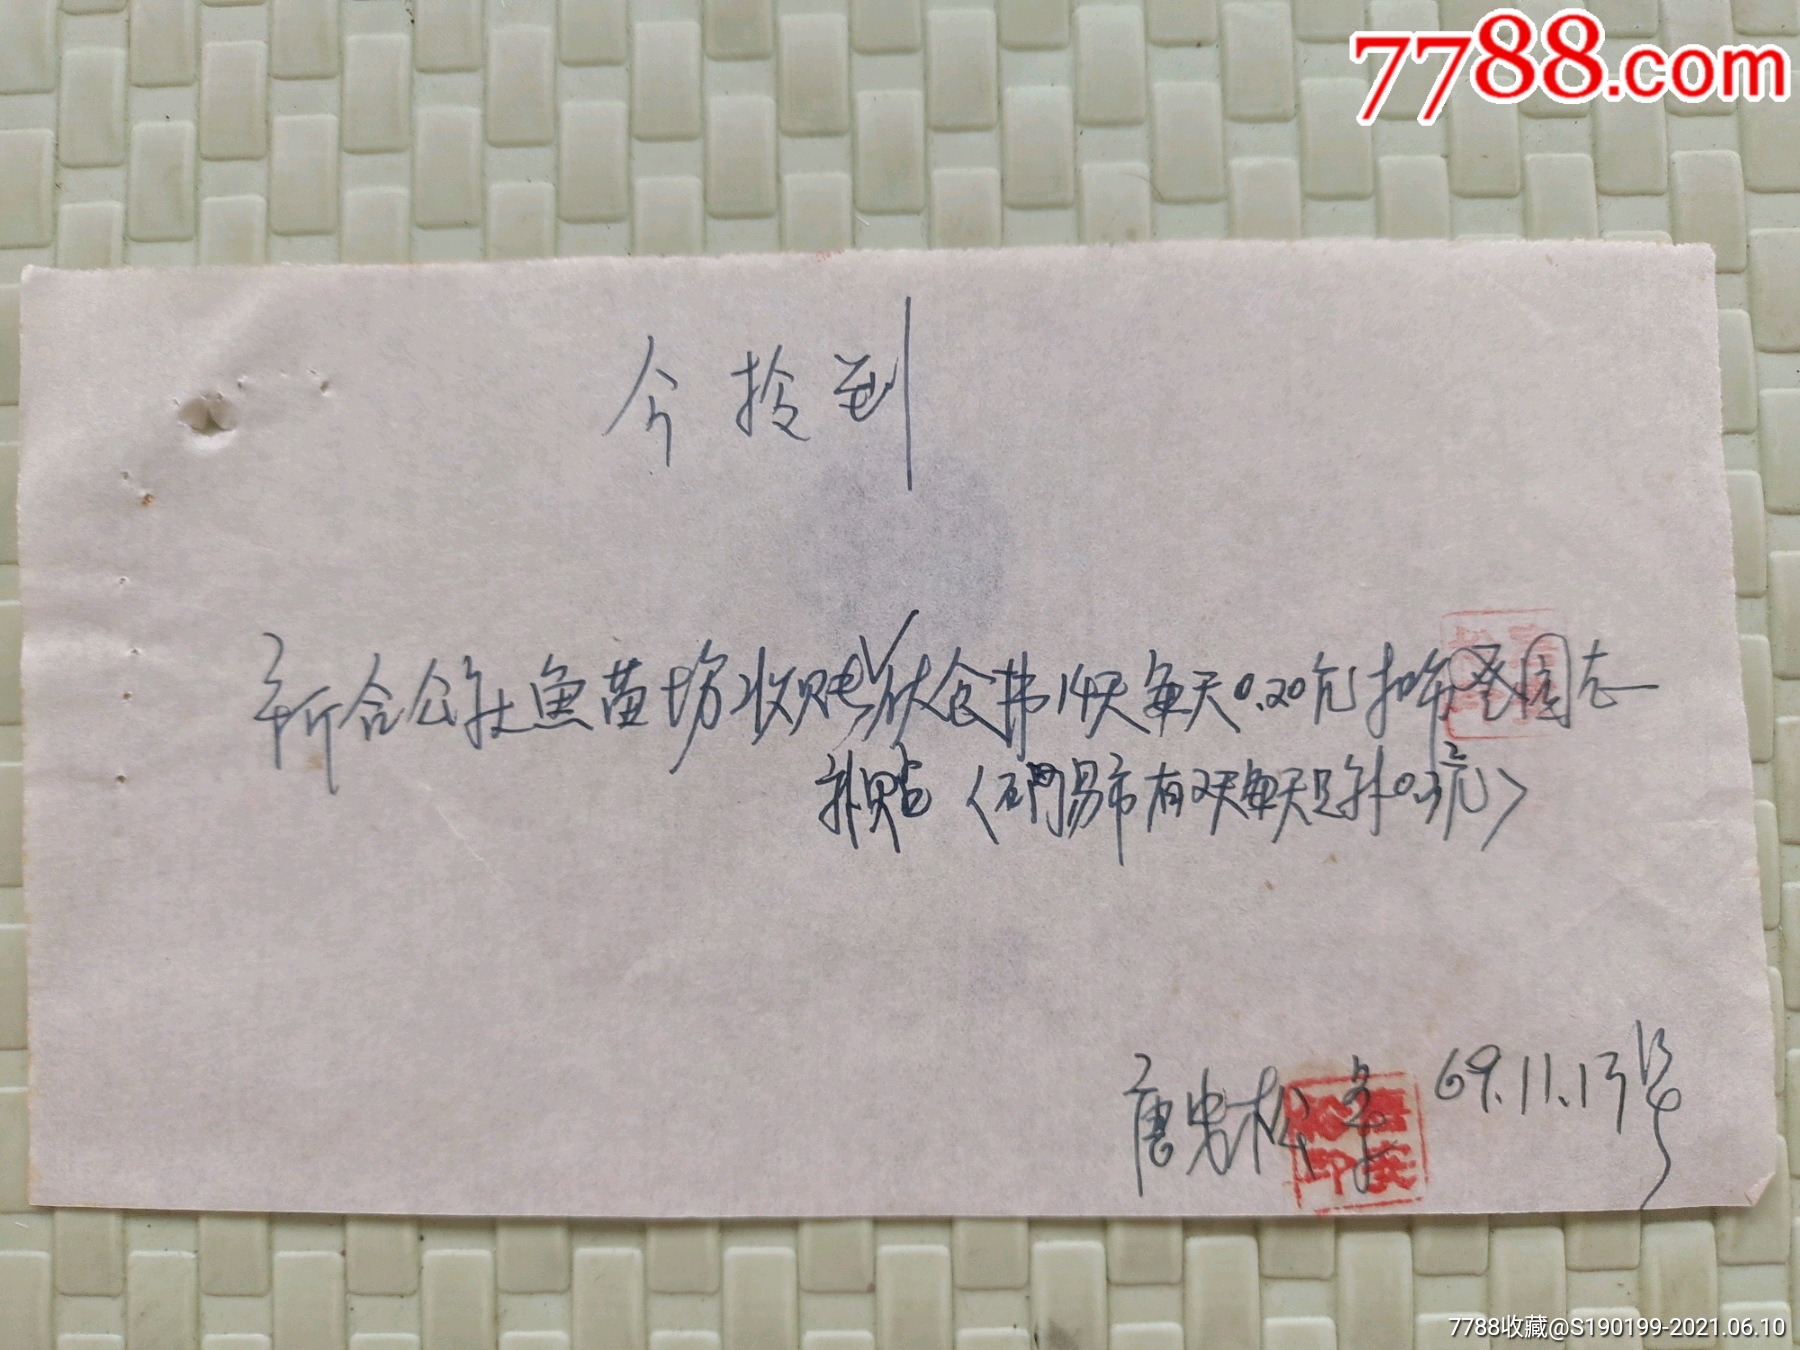 7788.com
今拎到
新合公社鱼苗场收贴伙食费14天每天0.20元
补贴(石门易市有2天每天只补0.3元)
唐忠松 69.11.13号
7788收藏@S190199-2021.06.10